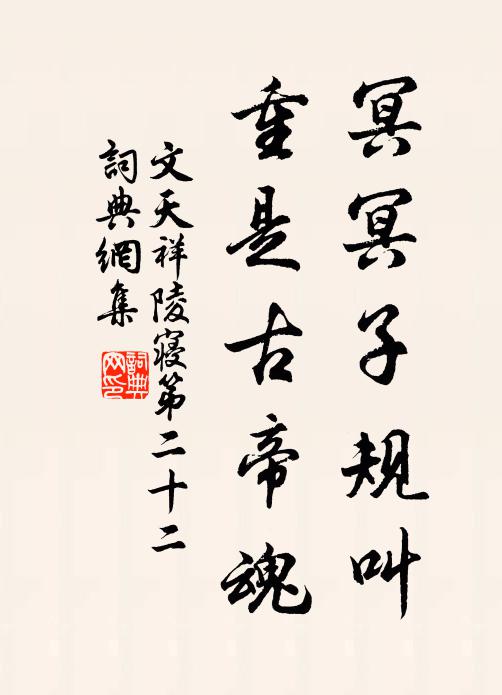 冥冥子規叫
重是古帝魂
文天祥陵寢第二十二
詞典網集
詞典
网印